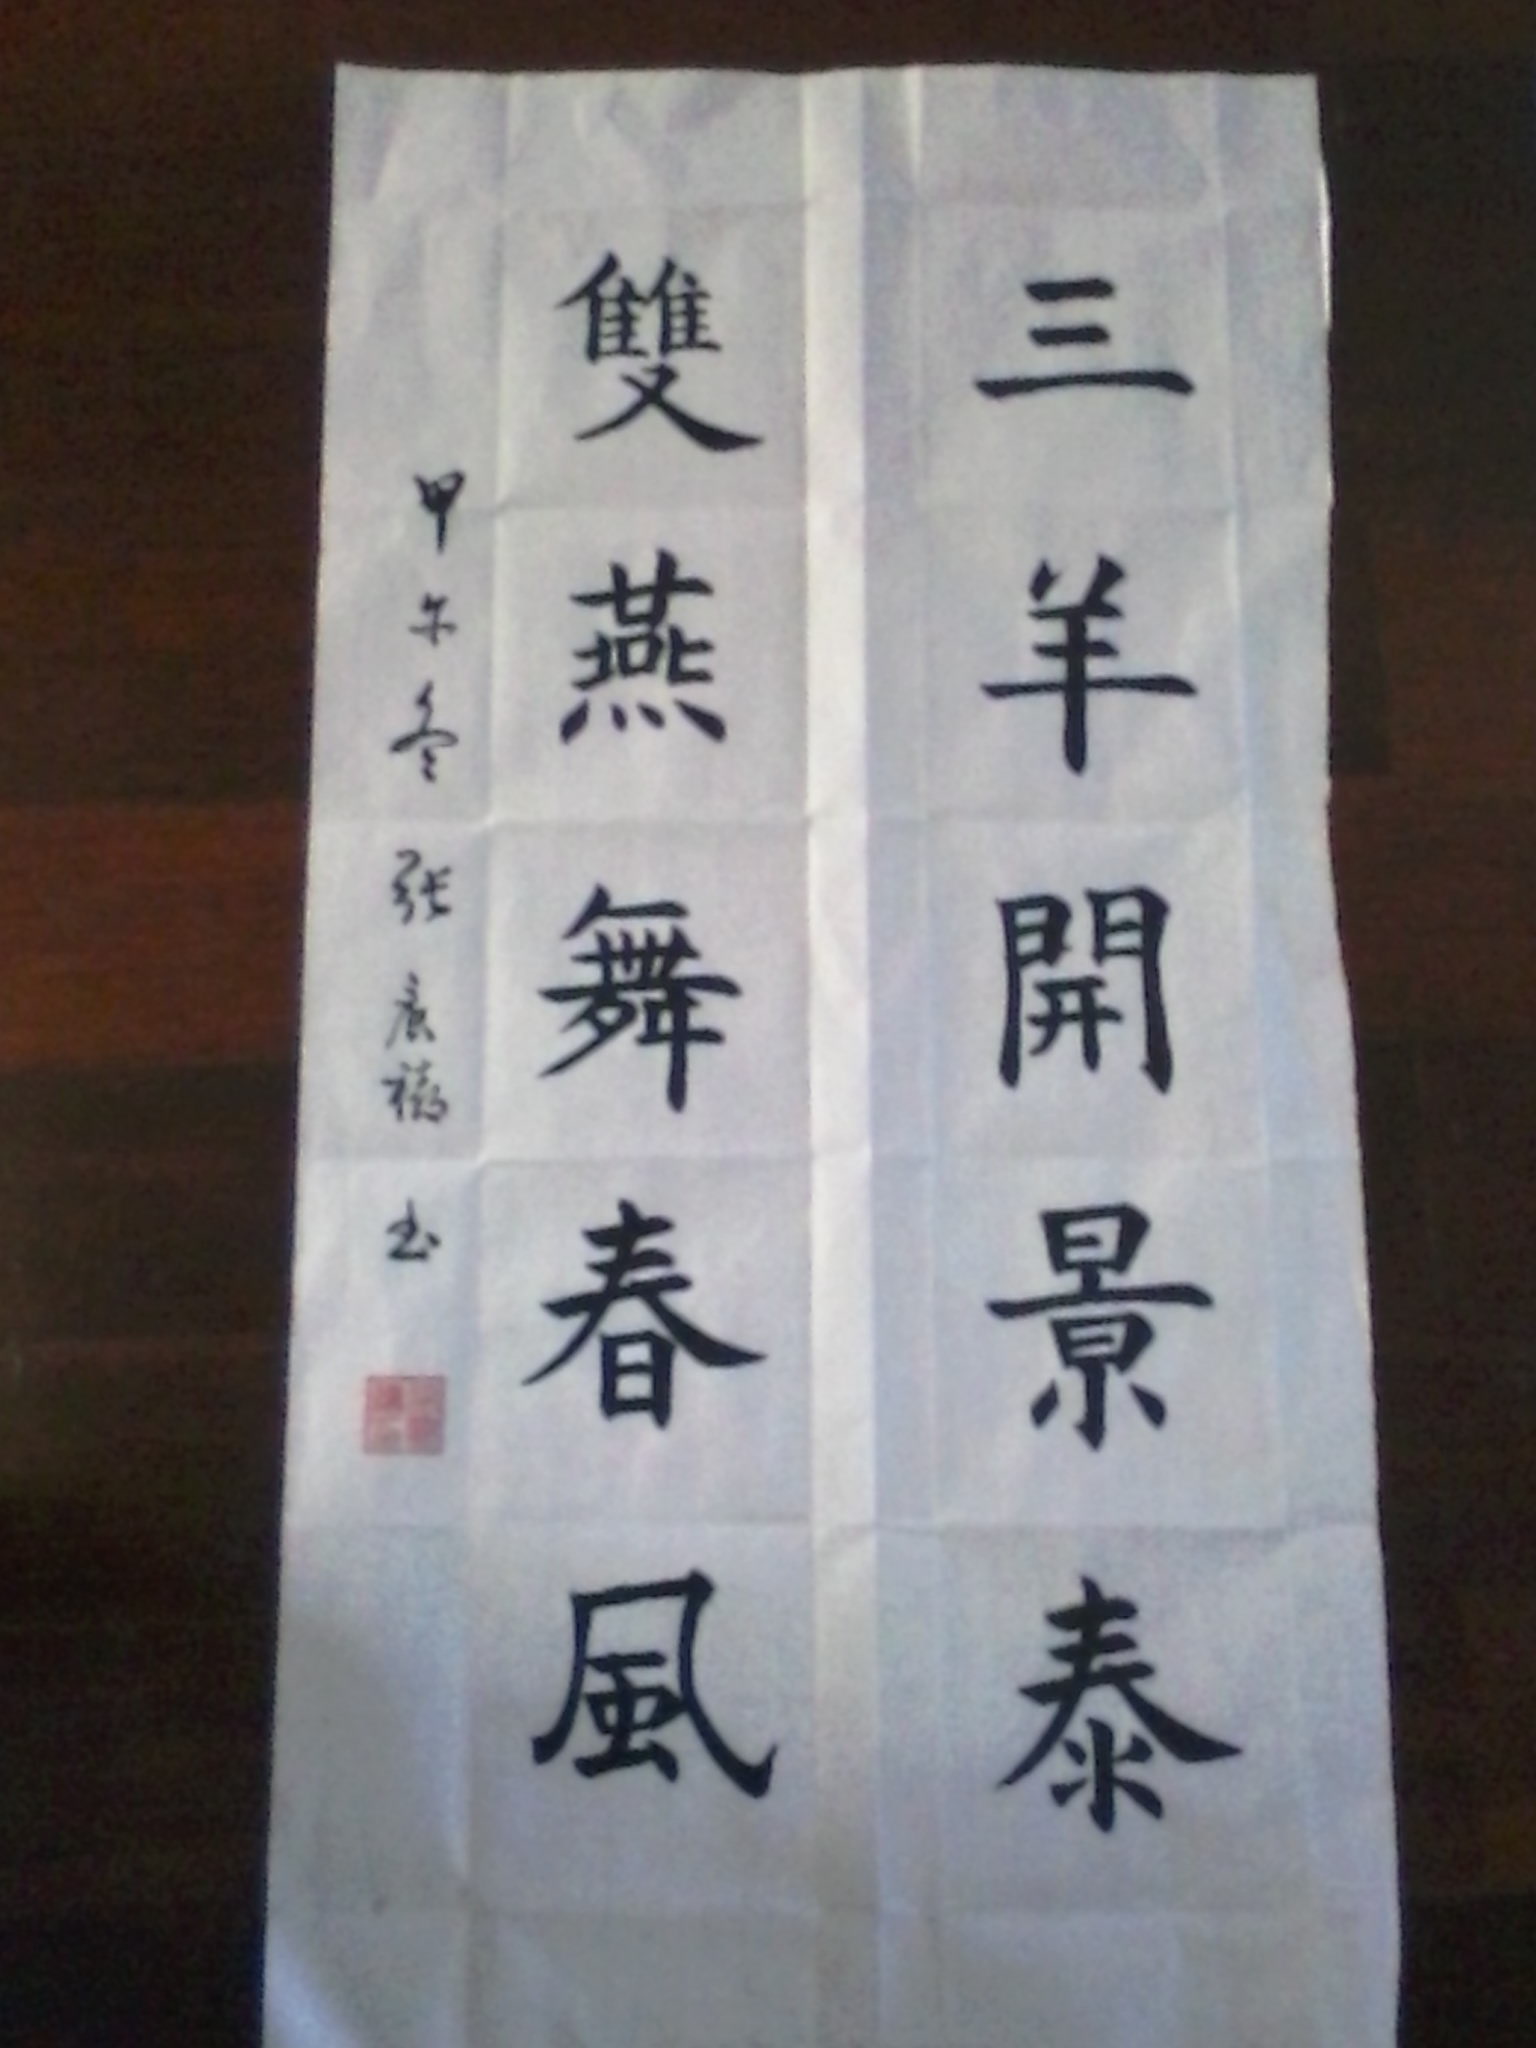 三羊開景泰
雙燕舞春風
甲午冬 张 书